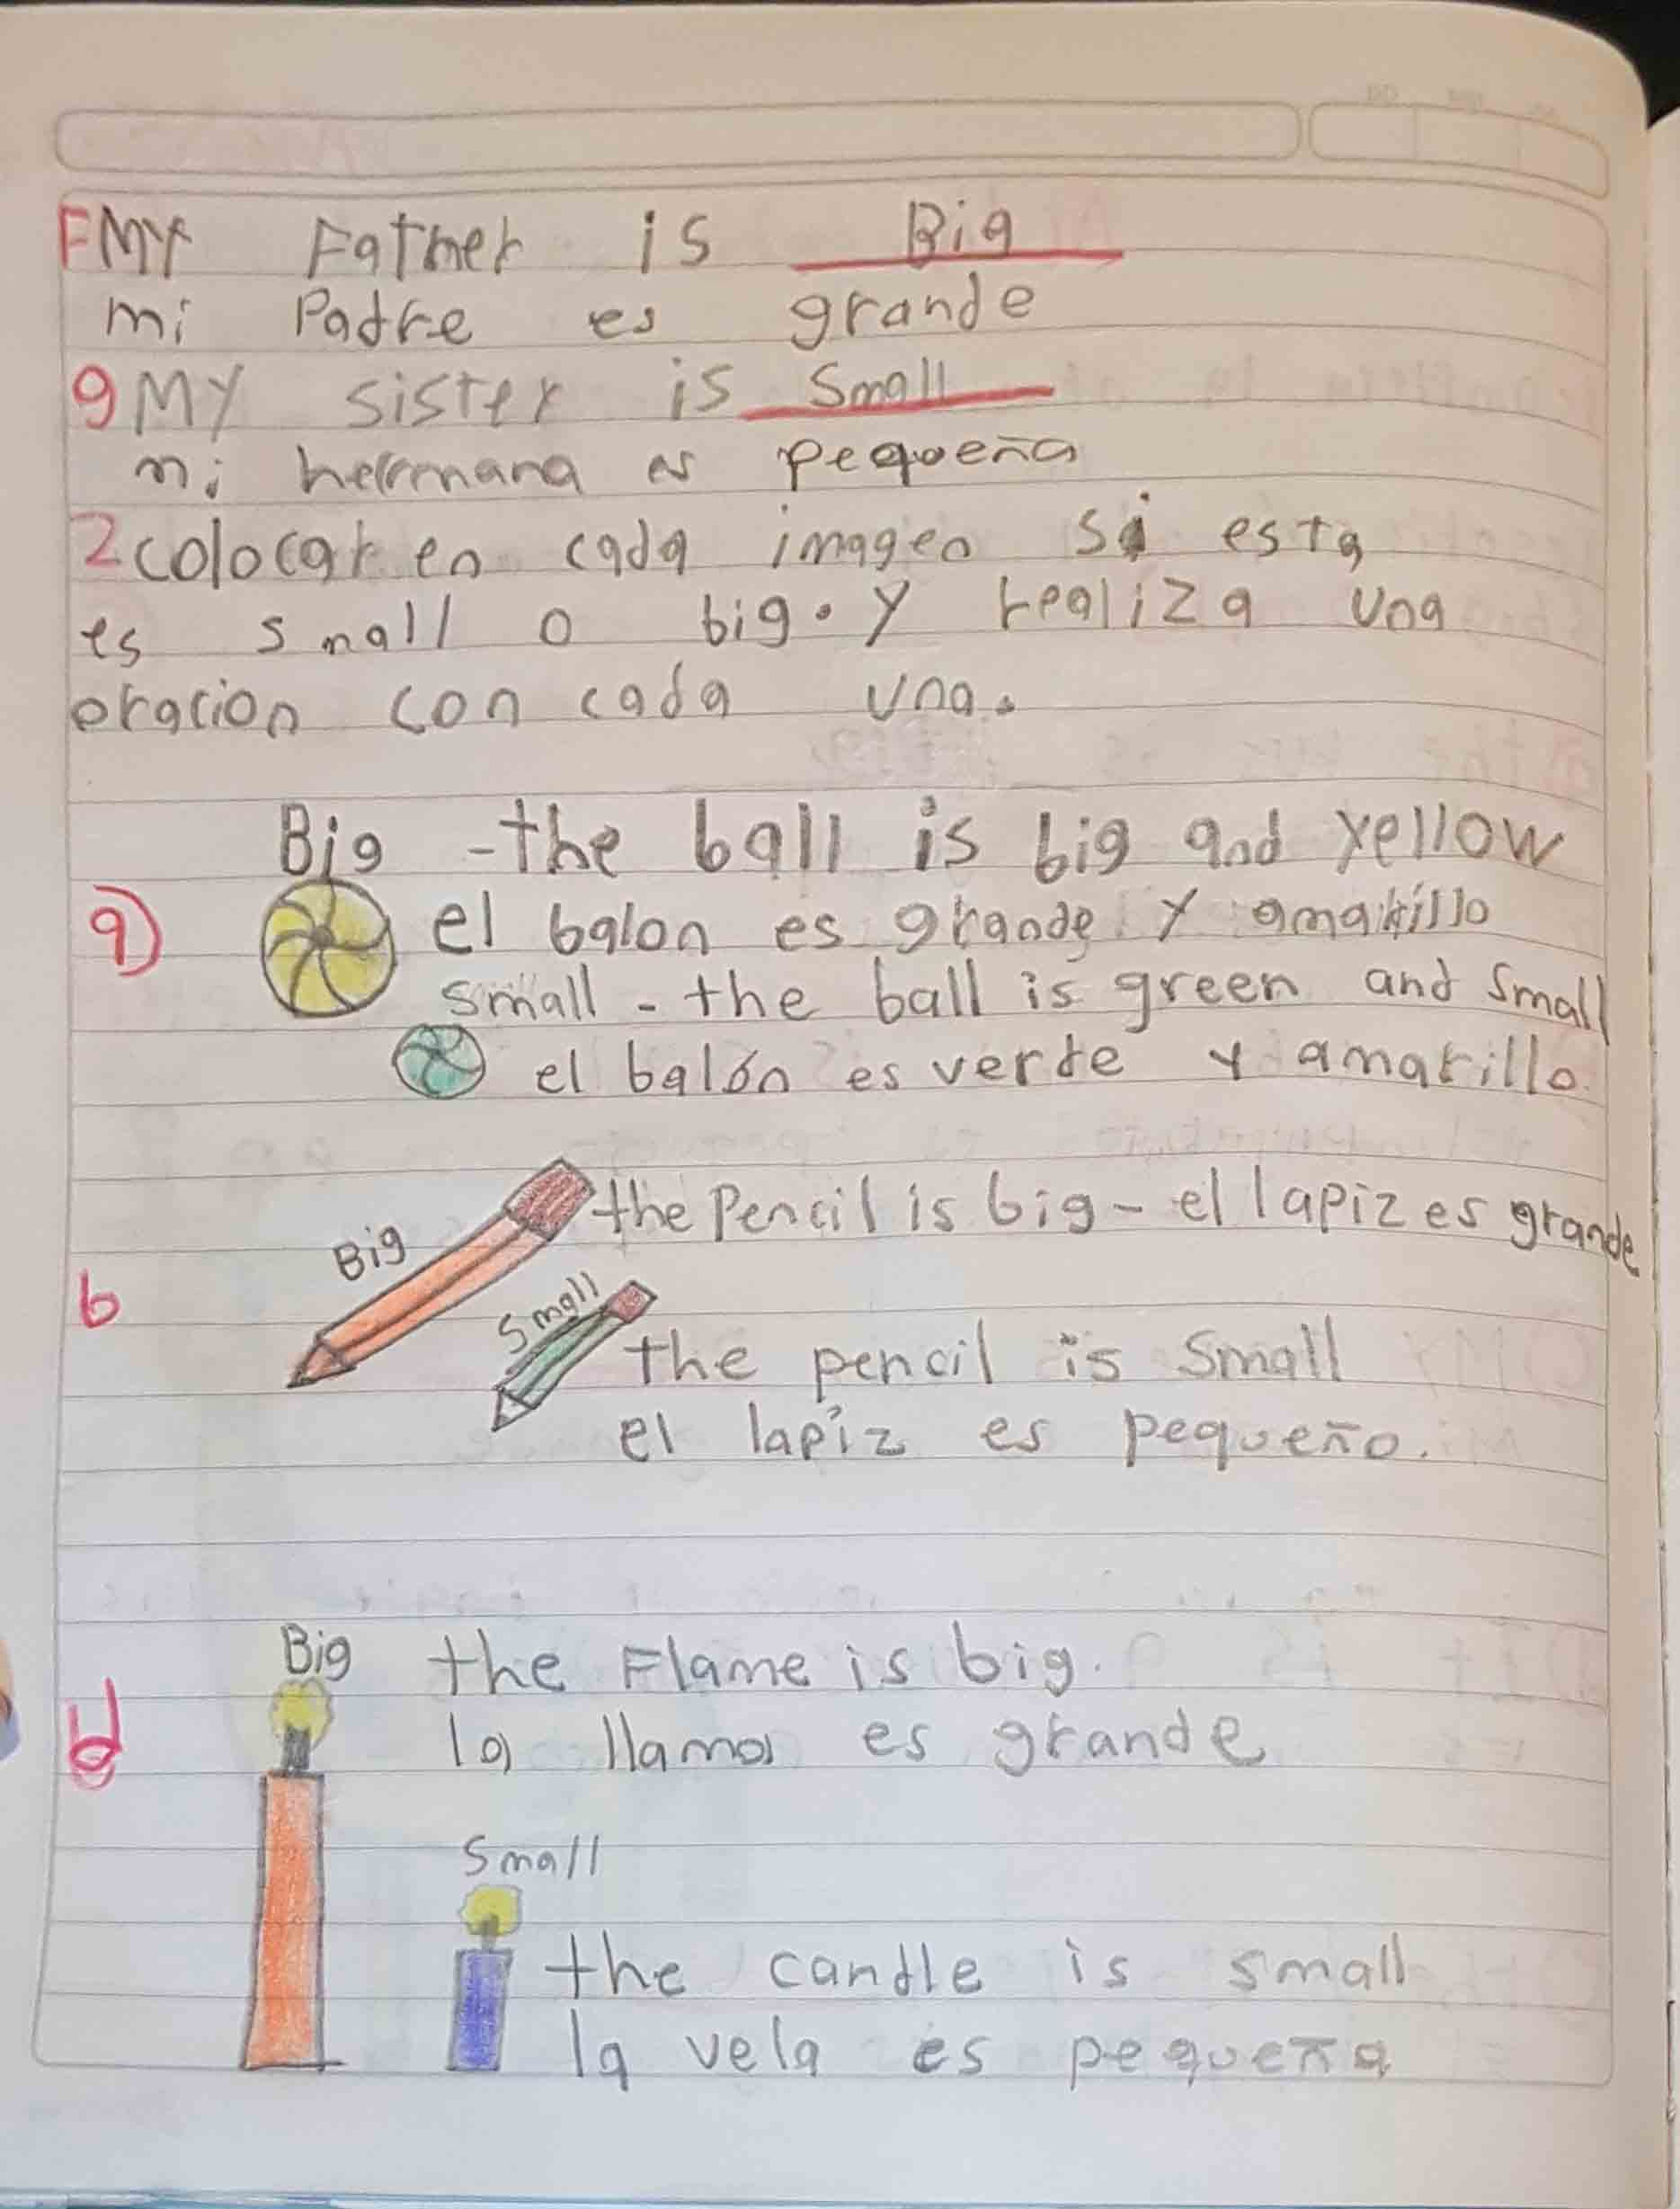 F My Father is Big
mi Padre es grande
g My sister is Small
mi hermana es pequeña
2 colocar en cada imagen si esta
es small o big. y realiza una
oracion con cada una.
Big - the ball is big and yellow
a) el balon es grande y amarillo
small - the ball is green and small
el balón es verde y amarillo.
the Pencil is big - el lapiz es grande
Big
b
Small
the pencil is small
el lapiz es pequeño.
Big the Flame is big.
d la llama es grande
Small
the candle is small
la vela es pequeña